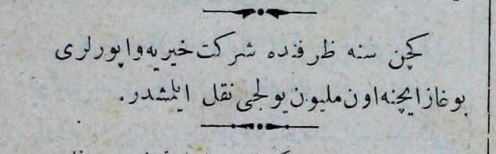 كچن سنه ظرفنده شركت خيريه واپورلرى
بوغاز ايچنه اون مليون يولجى نقل ايلمشدر.